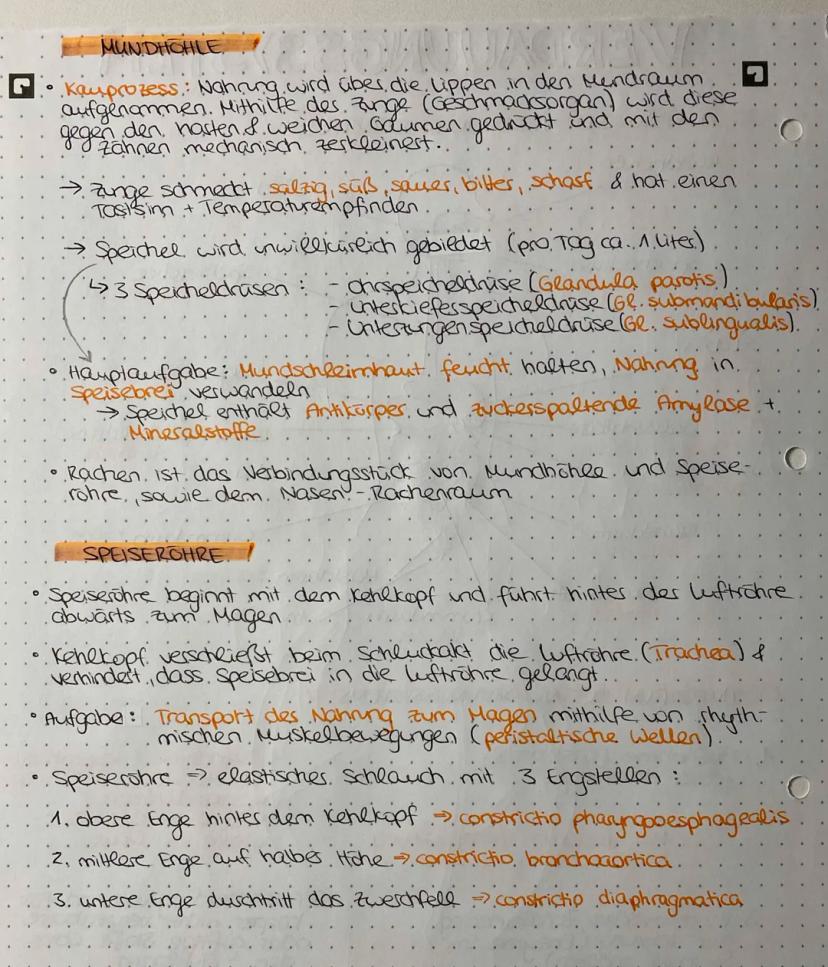 MUNDHÖHLE
• Kauprozess: Nahrung wird über die Lippen in den Mundraum
aufgenommen. Mithilfe der Zunge (Geschmacksorgan) wird diese
gegen den harten & weichen Gaumen gedrückt und mit den
Zähnen mechanisch zerkleinert.
→ Zunge schmeckt salzig, süß, sauer, bitter, scharf & hat einen
Tastsinn + Temperaturempfinden.
→ Speichel wird unwillkürlich gebildet (pro Tag ca. 1 Liter)
↳ 3 Speicheldrüsen: - Ohrspeicheldrüse (Glandula parotis)
- Unterkieferspeicheldrüse (Gl. submandibularis)
- Unterzungenspeicheldrüse (Gl. sublingualis)
• Hauptaufgabe: Mundschleimhaut feucht halten, Nahrung in
Speisebrei verwandeln
→ Speichel enthält Antikörper und zuckerspaltende Amylase +
Mineralstoffe
• Rachen ist das Verbindungsstück von Mundhöhle und Speise-
röhre, sowie dem Nasen-Rachenraum
SPEISERÖHRE
• Speiseröhre beginnt mit dem Kehlkopf und führt hinter der Luftröhre
abwärts zum Magen
• Kehlkopf verschließt beim Schluckakt die Luftröhre (Trachea) &
verhindert, dass Speisebrei in die Luftröhre gelangt.
• Aufgabe: Transport der Nahrung zum Magen mithilfe von rhyth-
mischen Muskelbewegungen (peristaltische Wellen)
• Speiseröhre ⇒ elastischer Schlauch mit 3 Engstellen:
1. obere Enge hinter dem Kehlkopf ⇒ constrictio pharyngooesphagealis
2. mittlere Enge auf halber Höhe ⇒ constrictio bronchoaortica
3. untere Enge durchtritt das Zwerchfell ⇒ constrictio diaphragmatica